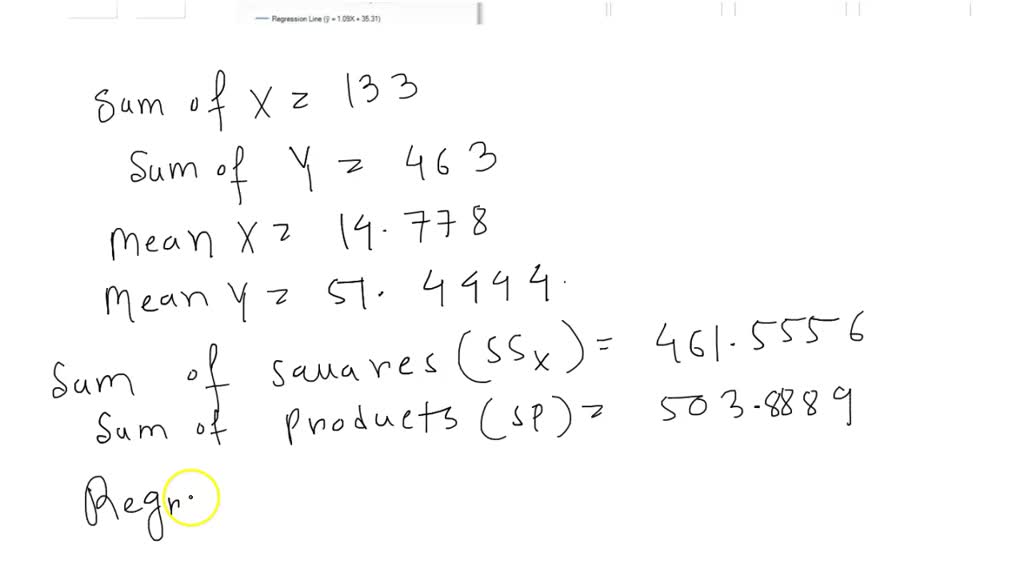 Regression Line (ŷ = 1.09X + 35.31)
Sum of X = 133
Sum of Y = 463
Mean X = 14.778
Mean Y = 51.4444.
Sum of sauares (SSx) = 461.5556
Sum of products (SP) = 503.8889
Regr